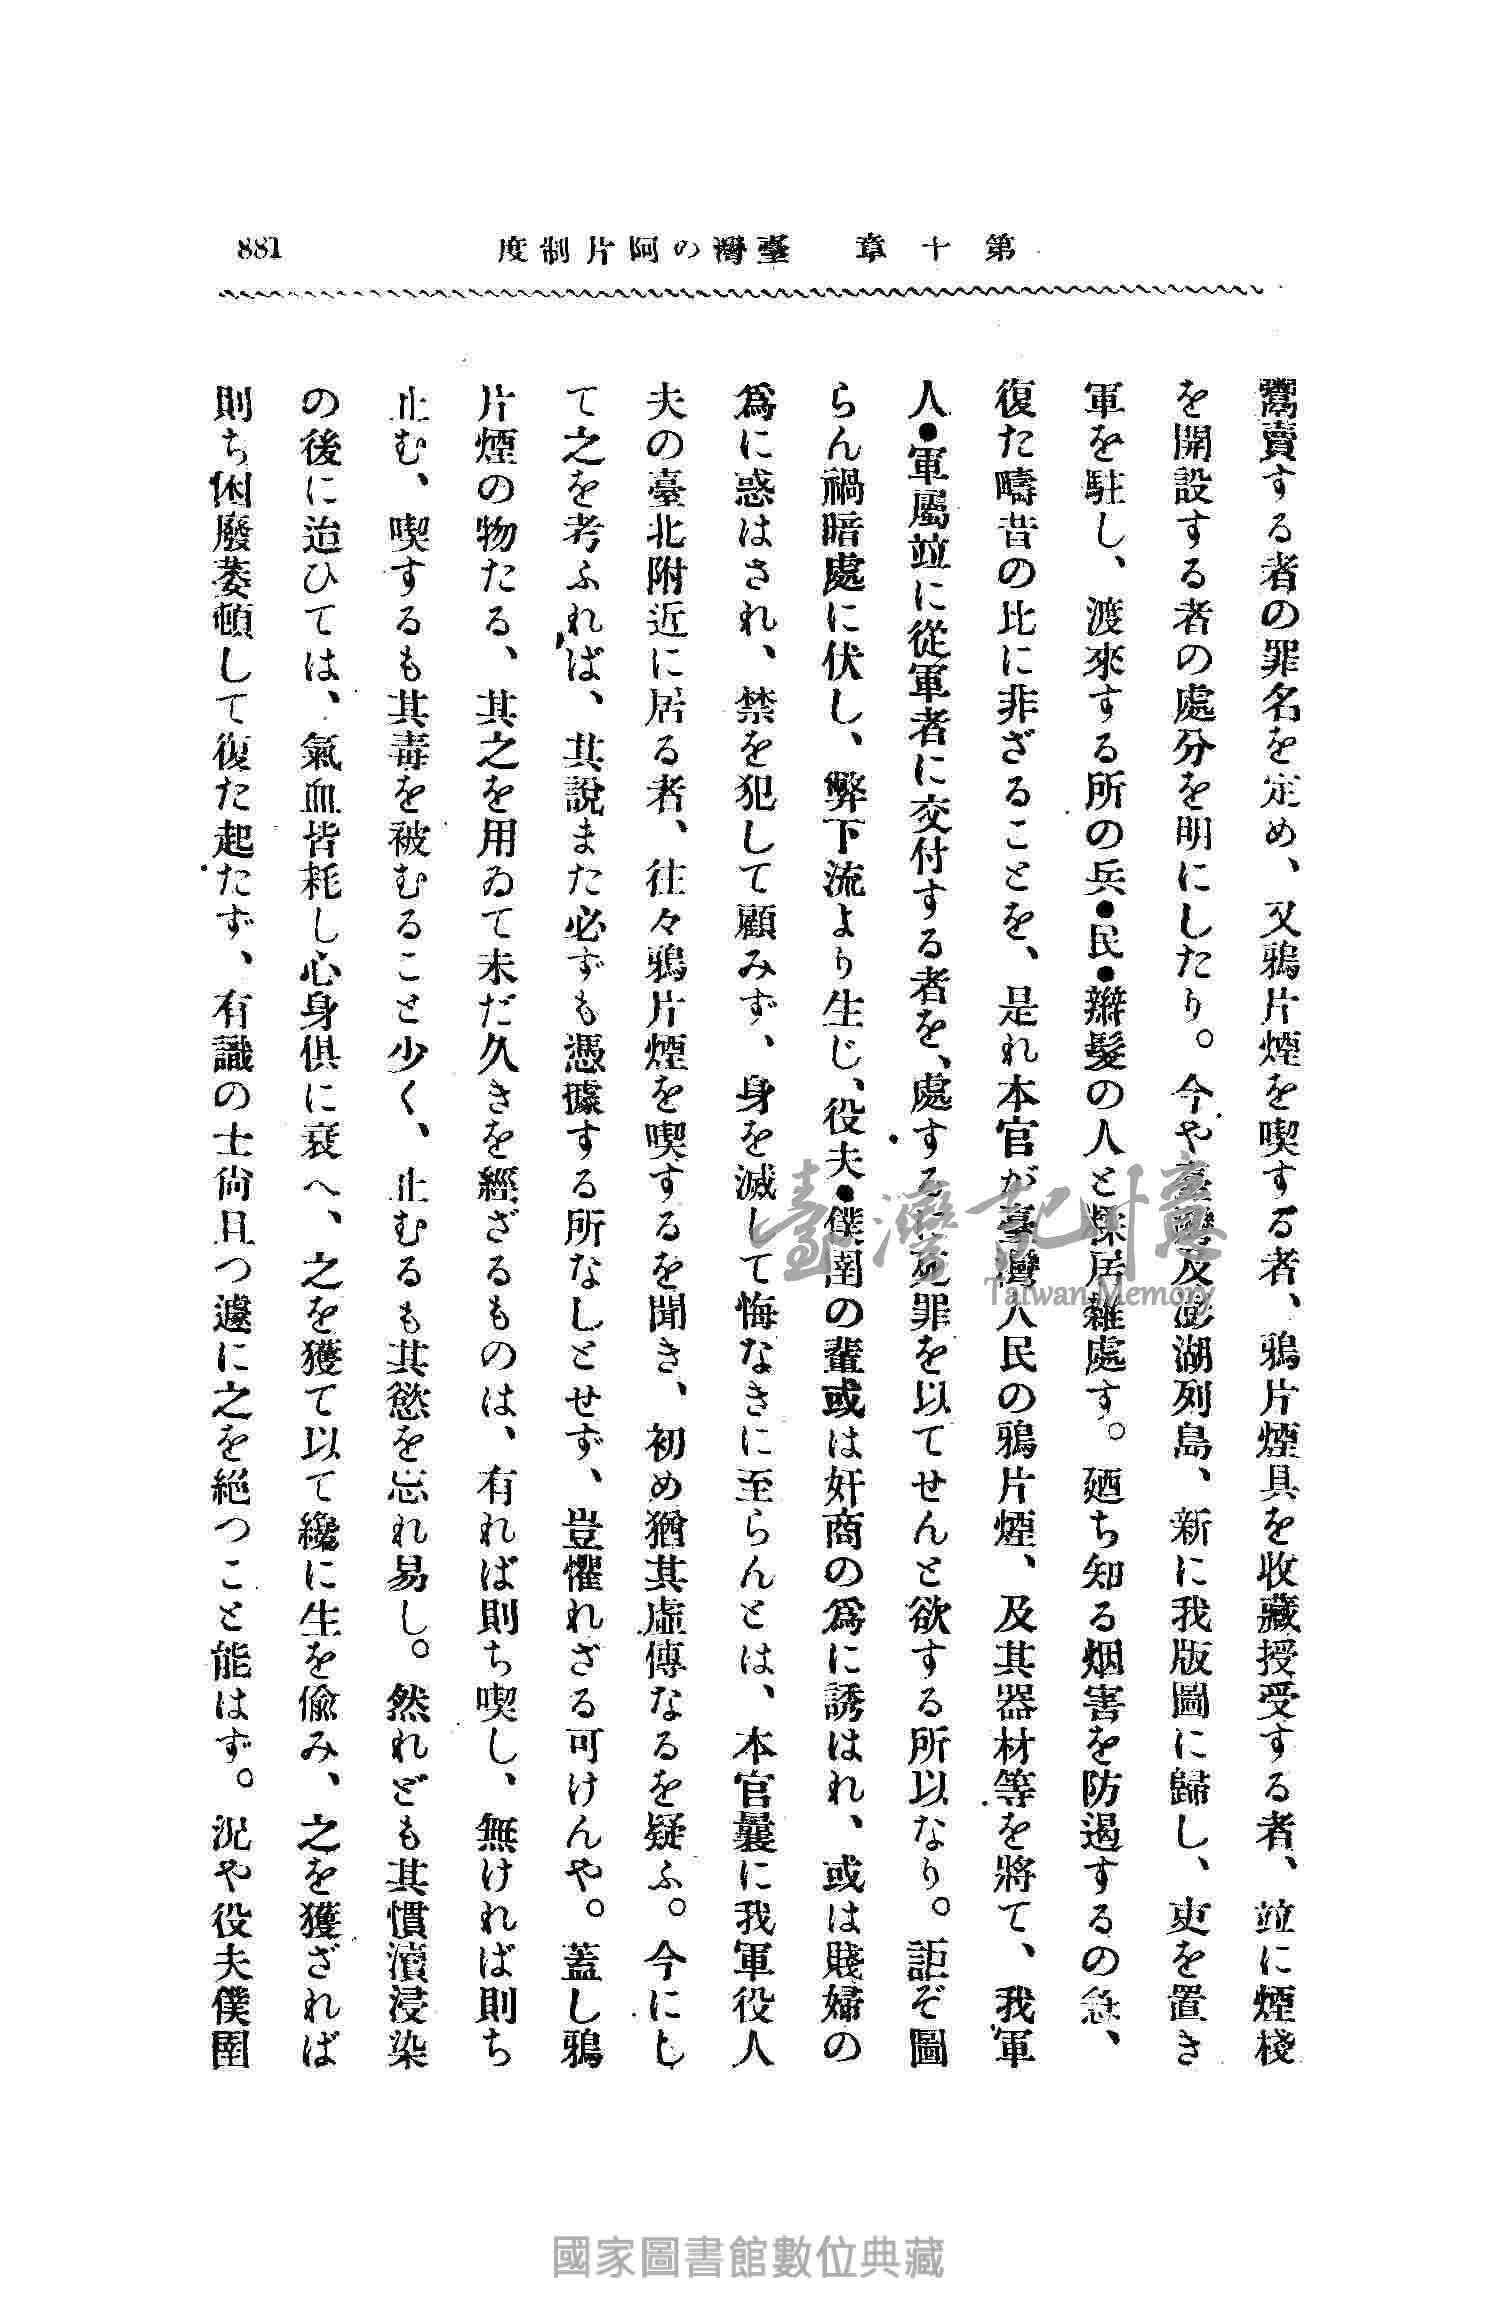 第十章 臺灣の阿片制度 881
鬻賣する者の罪名を定め、又鴉片煙を喫する者、鴉片煙具を收藏授受する者、竝に煙棧
を開設する者の處分を明にしたり。今や臺灣及澎湖列島、新に我版圖に歸し、吏を置き
軍を駐し、渡來する所の兵●民●辮髮の人と糅居雜處す。廼ち知る烟害を防遏するの急、
復た疇昔の比に非ざることを、是れ本官が臺灣人民の鴉片煙、及其器材等を將て、我軍
人●軍屬竝に從軍者に交付する者を、處するに死罪を以てせんと欲する所以なり。詎ぞ圖
らん禍暗處に伏し、弊下流より生じ、役夫●僕圉の輩或は奸商の爲に誘はれ、或は賤婦の
爲に惑はされ、禁を犯して顧みず、身を滅して悔なきに至らんとは、本官曩に我軍役人
夫の臺北附近に居る者、往々鴉片煙を喫するを聞き、初め猶其虛傳なるを疑ふ。今にし
て之を考ふれば、其說また必ずも憑據する所なしとせず、豈懼れざる可けんや。蓋し鴉
片煙の物たる、其之を用ゐて未だ久きを經ざるものは、有れば則ち喫し、無ければ則ち
止む、喫するも其毒を被むること少く、止むるも其慾を忘れ易し。然れども其慣瀆浸染
の後に迨ひては、氣血皆耗し心身俱に衰へ、之を獲て以て纔に生を偸み、之を獲ざれば
則ち困廢萎頓して復た起たず、有識の士尙且つ遽に之を絕つこと能はず。況や役夫僕圉
臺灣記憶
Taiwan Memory
國家圖書館數位典藏